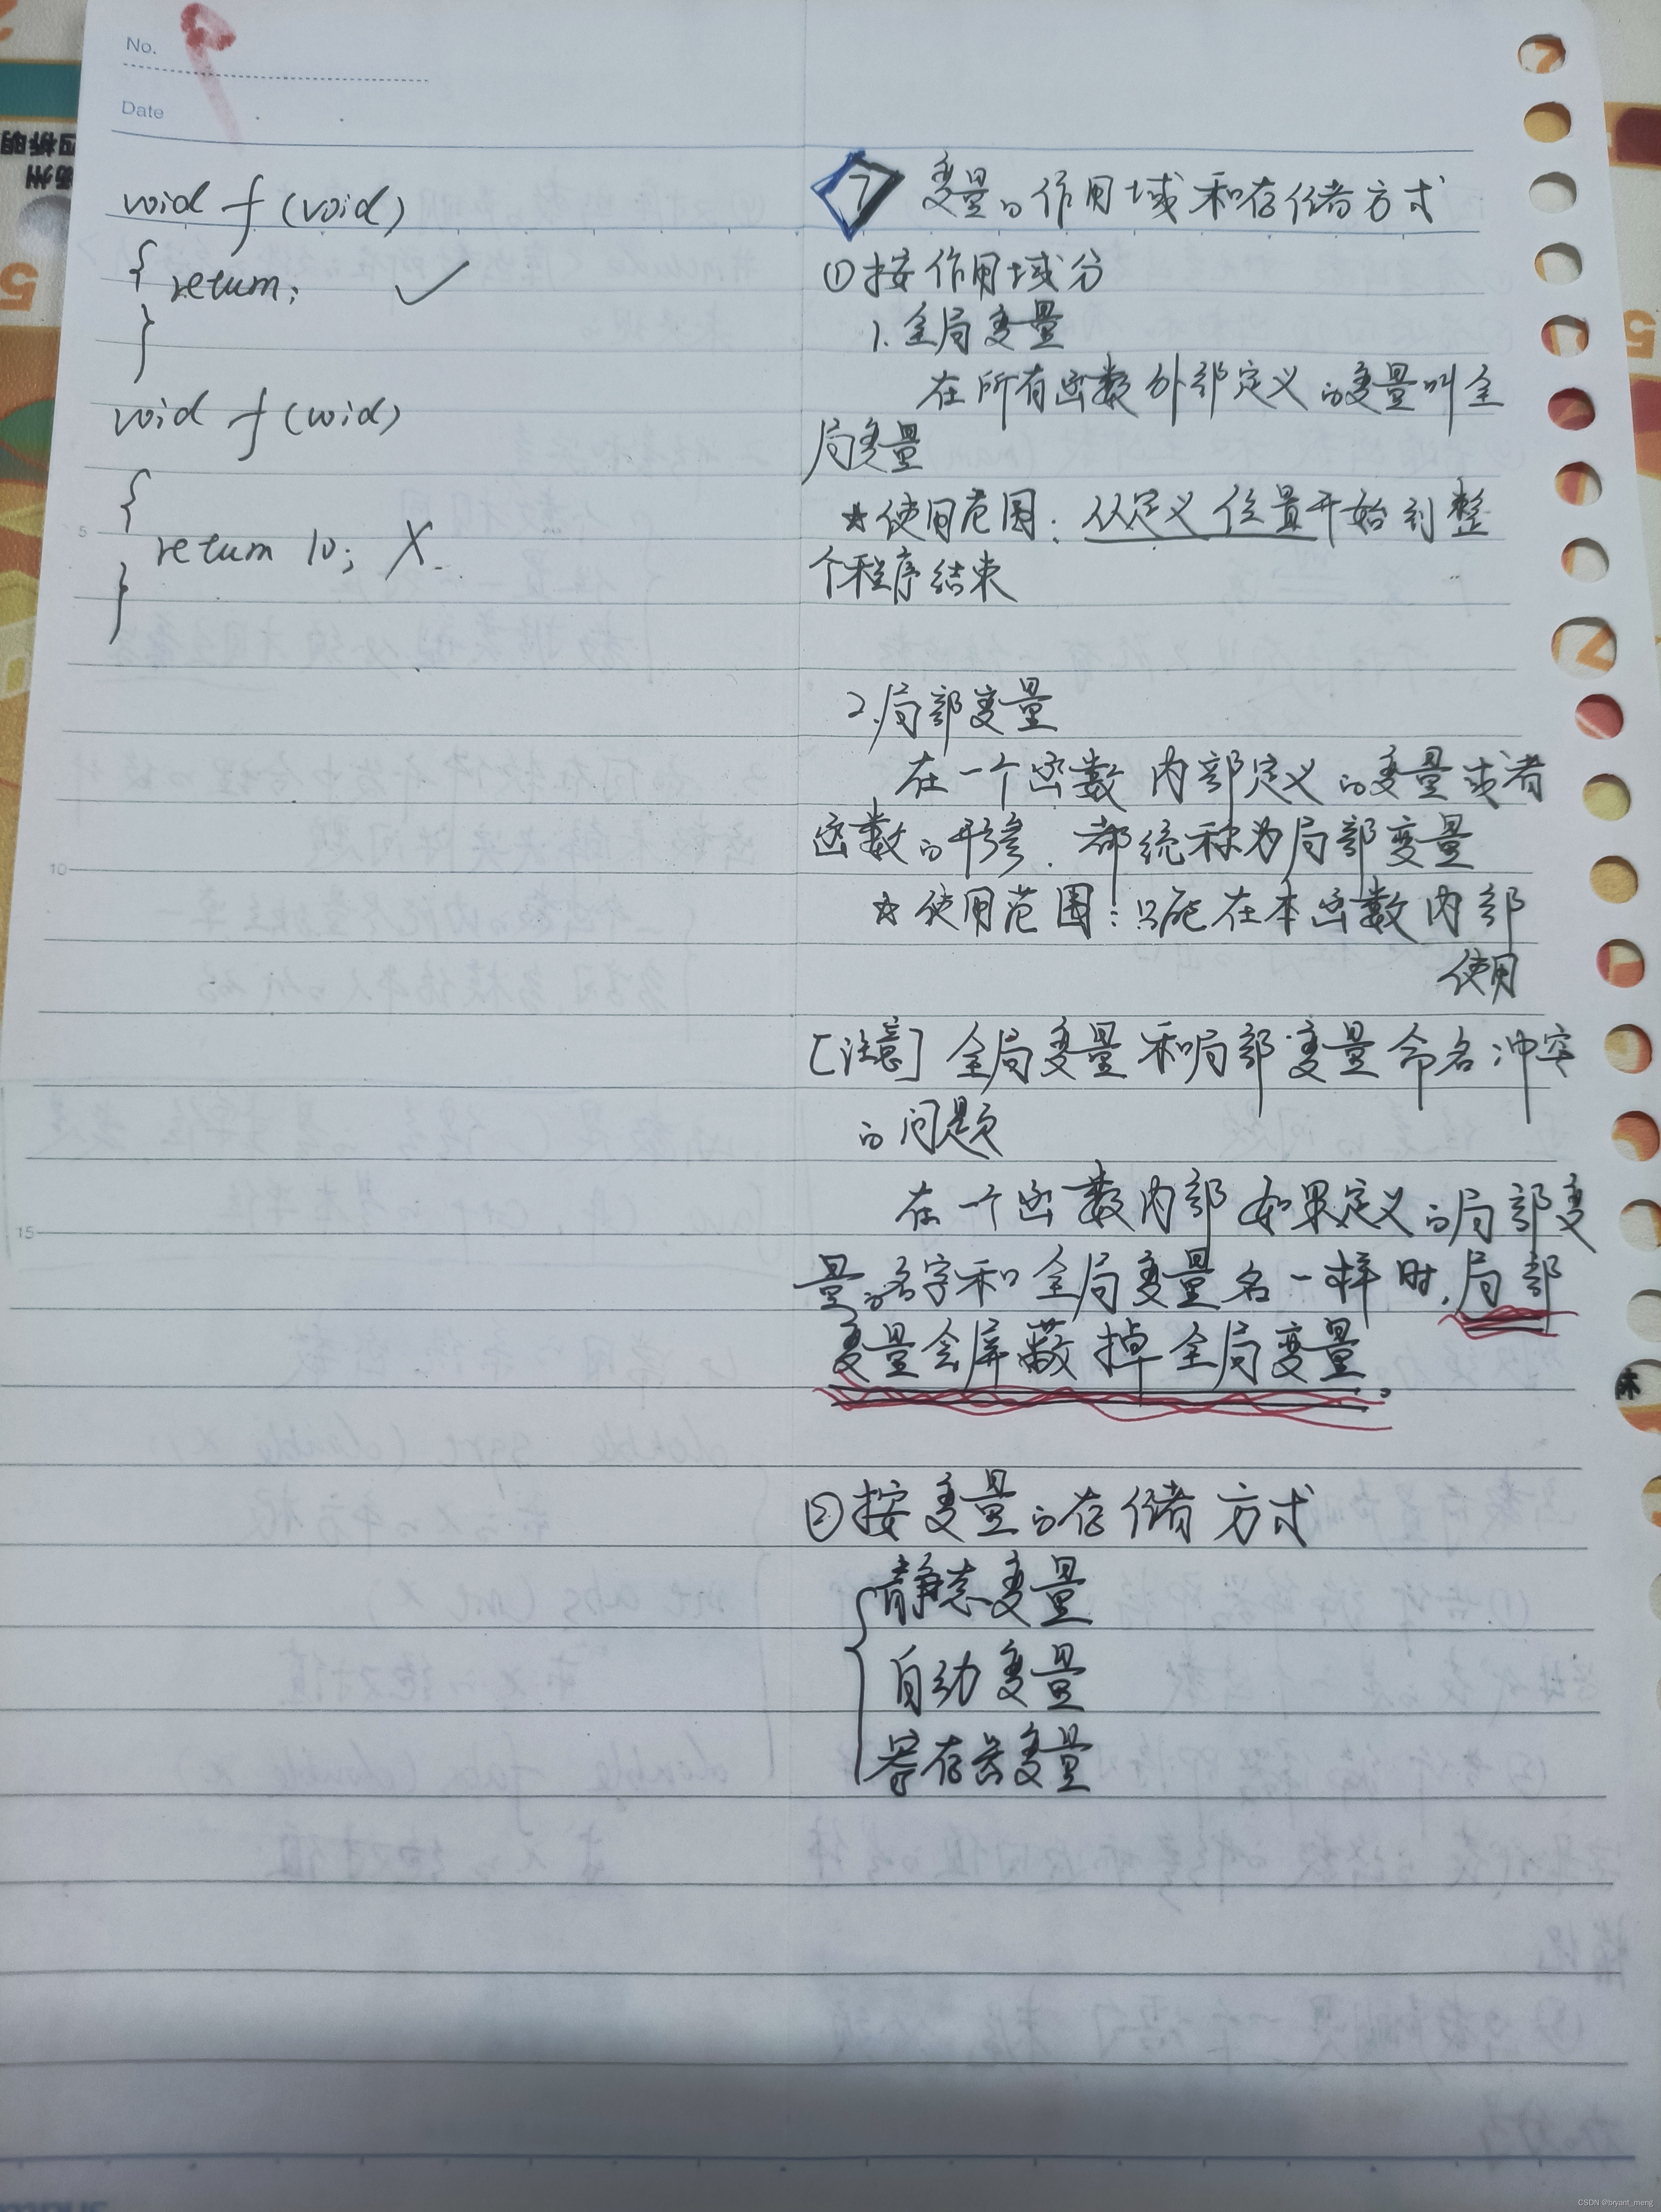 No.
9
Date
void f (void)
{ return;  ✓
}
void f (void)
{
return 10;  X
}
5
10
15
7 变量的作用域和存储方式
①按作用域分
1.全局变量
在所有函数外部定义的变量叫全
局变量
☆使用范围:从定义位置开始到整
个程序结束
2.局部变量
在一个函数内部定义的变量或者
函数的形参.都统称为局部变量
☆使用范围:只能在本函数内部
使用
[注意]全局变量和局部变量命名冲突
的问题
在一个函数内部如果定义的局部变
量的名字和全局变量名一样时,局部
变量会屏蔽掉全局变量.
②按变量的存储方式
静态变量
自动变量
寄存器变量
CSDN @bryant_meng